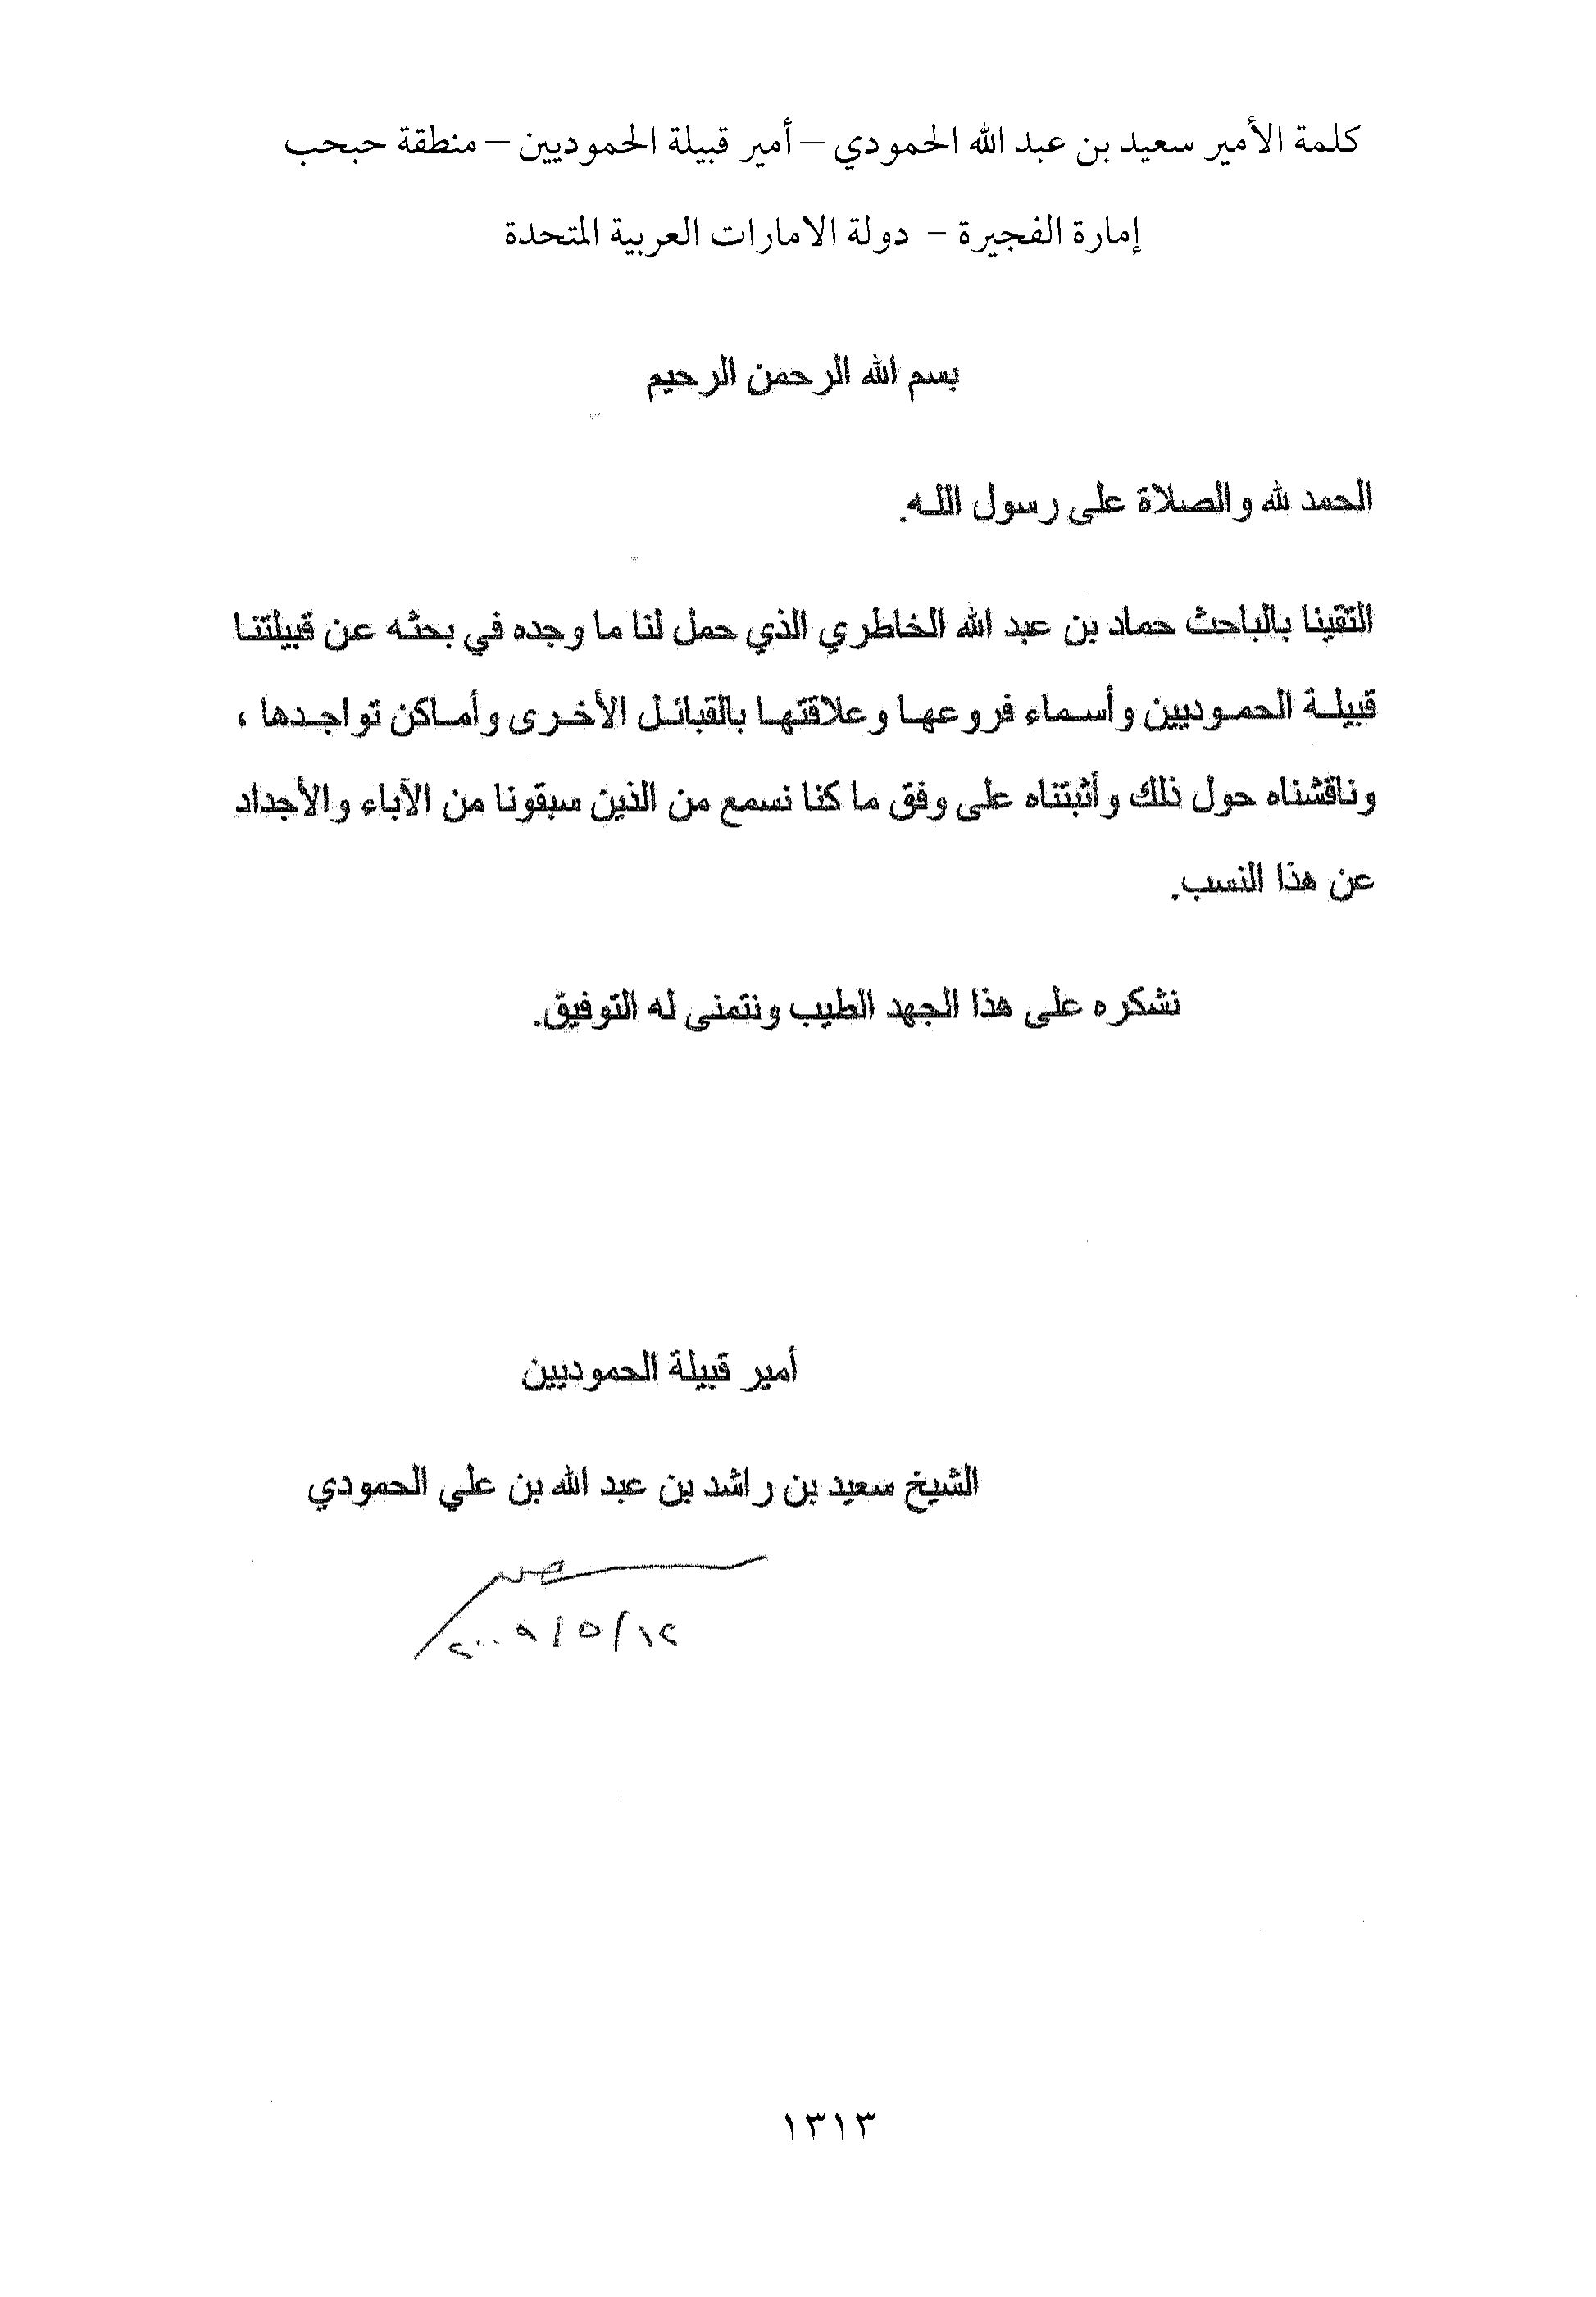 كلمة الأمير سعيد بن عبد الله الحمودي – أمير قبيلة الحموديين – منطقة حبحب
إمارة الفجيرة – دولة الامارات العربية المتحدة
بسم الله الرحمن الرحيم
الحمد لله والصلاة على رسول اللـه.
التقينا بالباحث حماد بن عبد الله الخاطري الذي حمل لنا ما وجده في بحثه عن قبيلتنا
قبيلة الحموديين وأسماء فروعها وعلاقتها بالقبائل الأخرى وأماكن تواجدها ،
وناقشناه حول ذلك وأثبتناه على وفق ما كنا نسمع من الذين سبقونا من الآباء والأجداد
عن هذا النسب.
نشكره على هذا الجهد الطيب ونتمنى له التوفيق.
أمير قبيلة الحموديين
الشيخ سعيد بن راشد بن عبد الله بن علي الحمودي
١٢/٥/٢٠٠٩
١٣١٣